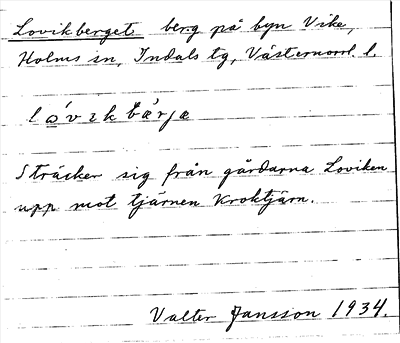 Lovikberget berg på byn Vike,
Holms sn, Indals tg, Västernorrl. l.
Sträcker sig från gårdarna Loviken
upp mot tjärnen Kroktjärn.
Valter Jansson 1934.